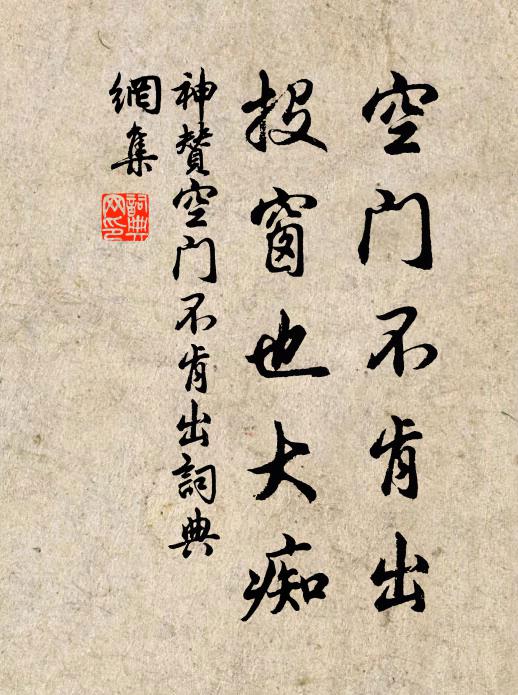 空门不肯出
投窗也大痴
神赞空门不肯出詞典
網集
詞典
网印